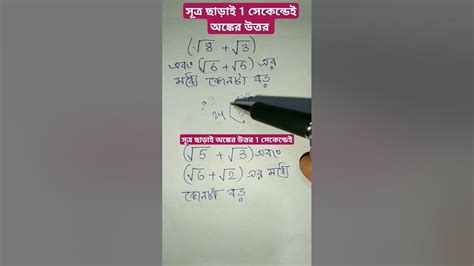 সূত্র ছাড়াই 1 সেকেন্ডেই
অঙ্কের উত্তর
(√8 + √3)
এবং (√6 + √5) এর
মধ্যে কোনটা বড়
সূত্র ছাড়াই অঙ্কের উত্তর 1 সেকেন্ডেই
(√5 + √3) এবং
(√6 + √2) এর মধ্যে
কোনটা বড়